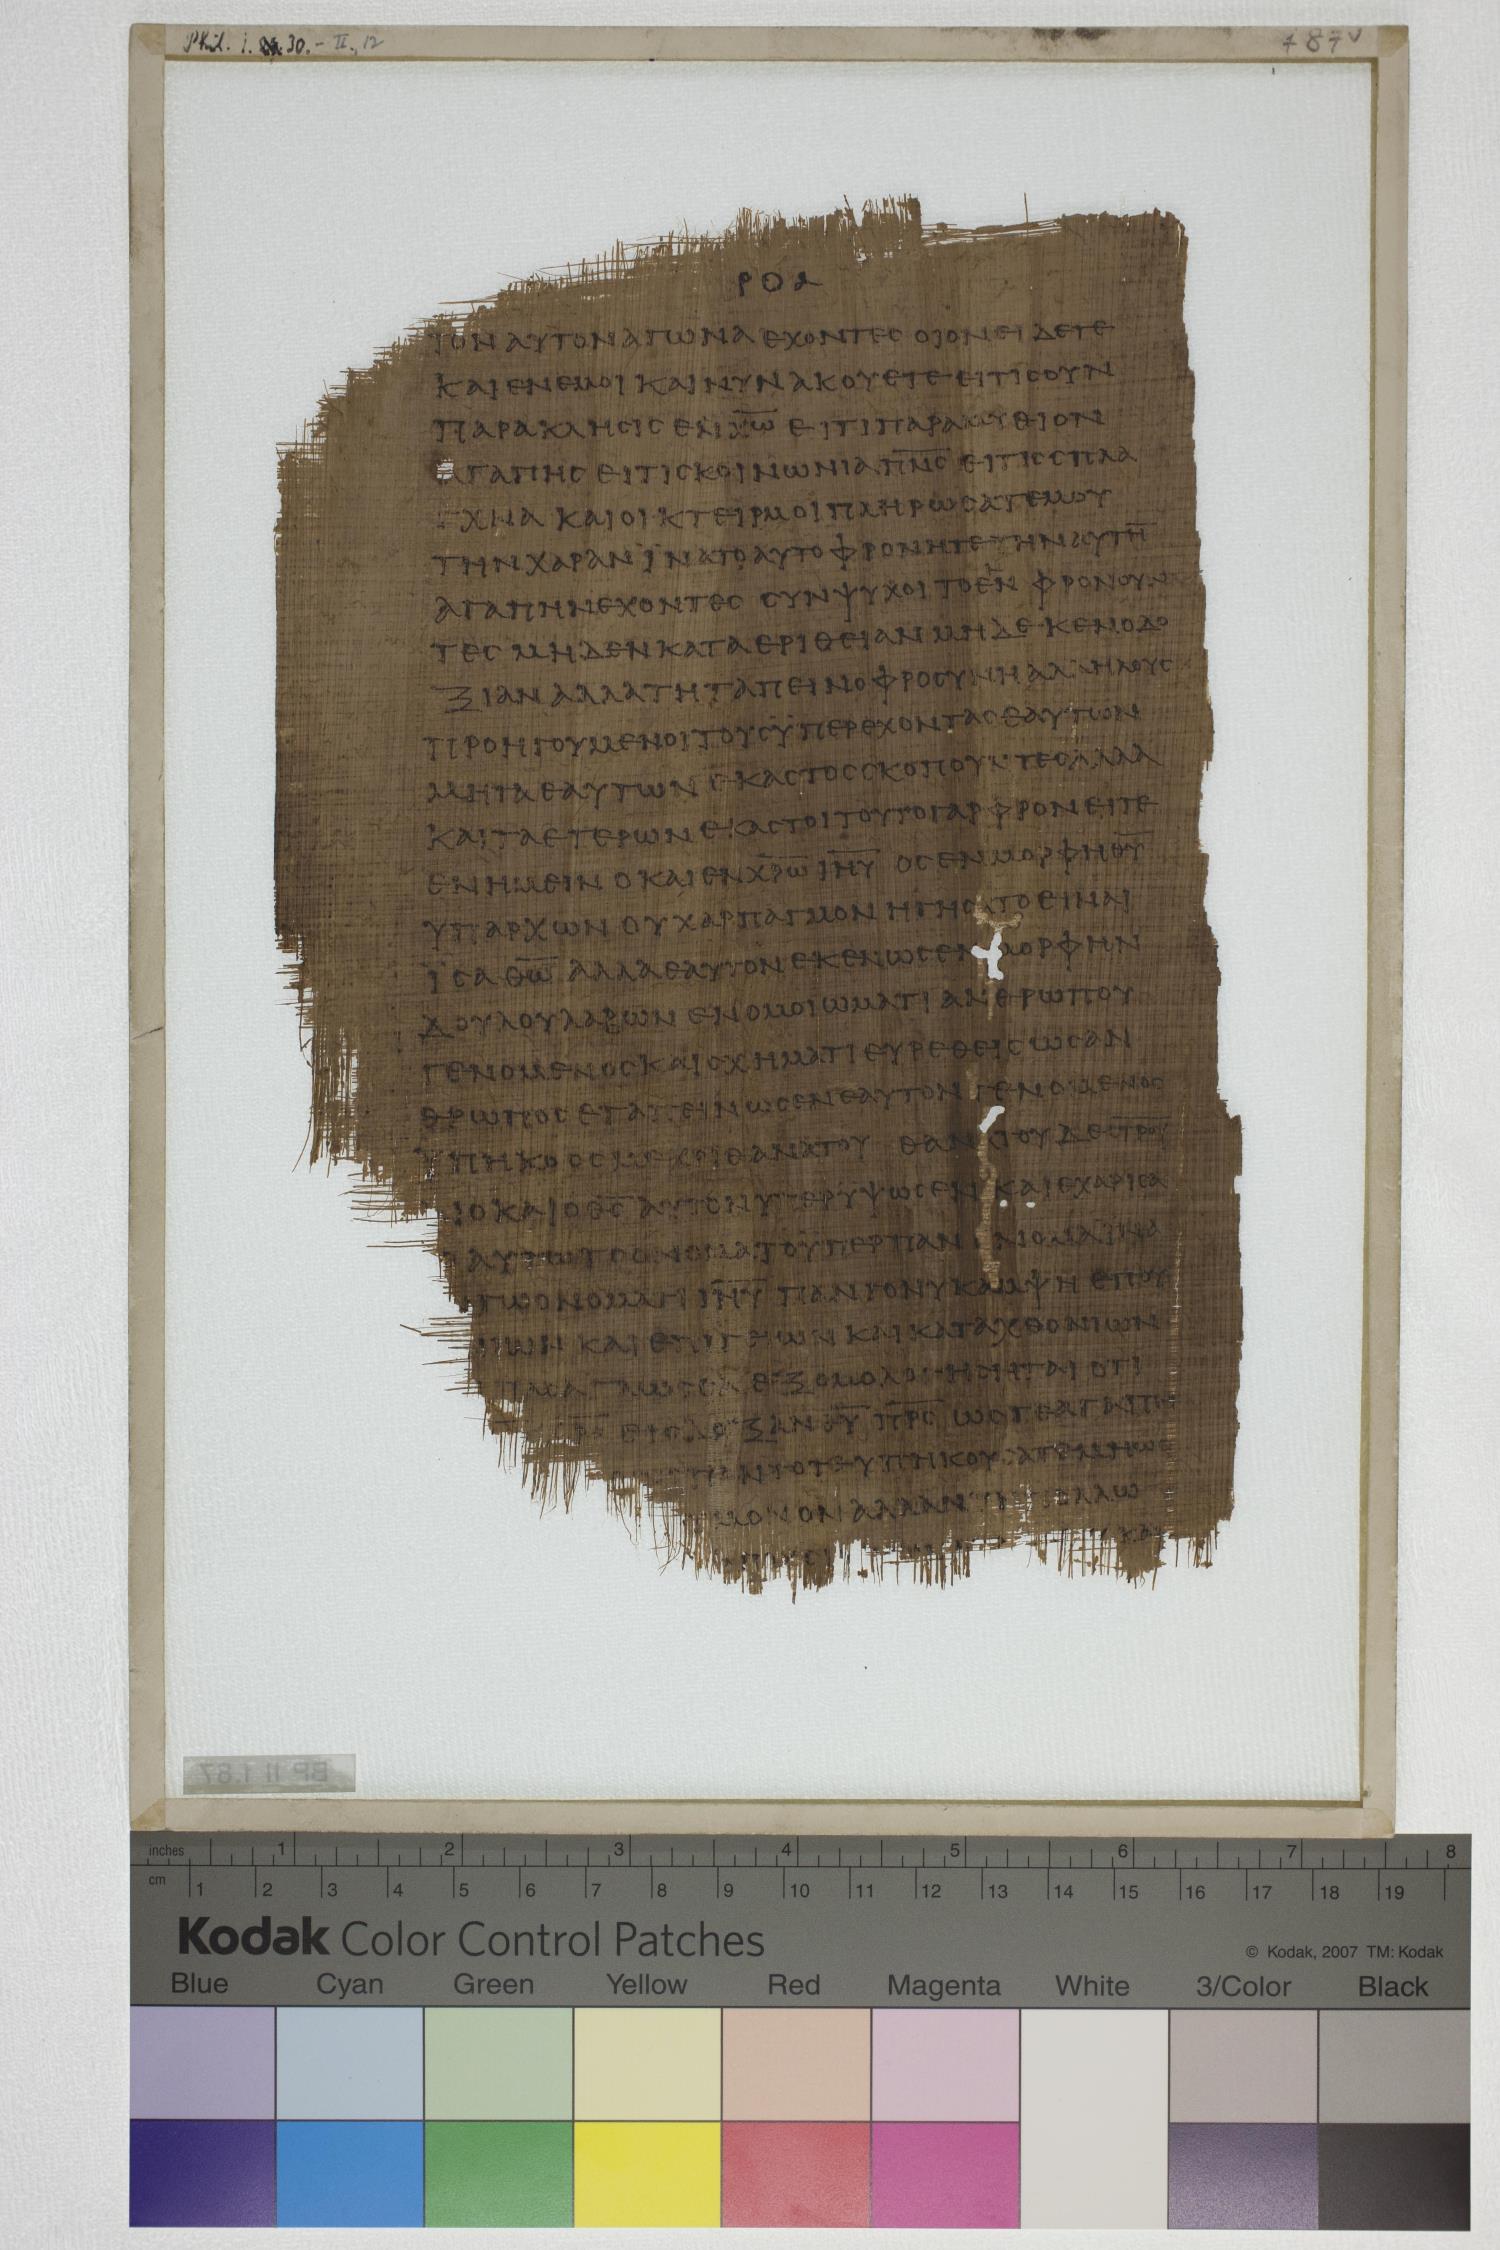 Phil. I. 30. – II, 12
787 v
ΡΟΔ
ΤΟΝ ΑΥΤΟΝ ΑΓΩΝΑ ΕΧΟΝΤΕΣ ΟΙΟΝ ΕΙΔΕΤΕ
ΚΑΙ ΕΝ ΕΜΟΙ ΚΑΙ ΝΥΝ ΑΚΟΥΕΤΕ ΕΙ ΤΙΣ ΟΥΝ
ΠΑΡΑΚΛΗΣΙΣ ΕΝ ΕΙ ΤΙ ΠΑΡΑΜΥΘΙΟΝ
ΑΓΑΠΗΣ ΕΙ ΤΙΣ ΚΟΙΝΩΝΙΑ Π̅Ν̅Σ̅ ΕΙ ΤΙΣ ΣΠΛΑ
ΓΧΝΑ ΚΑΙ ΟΙΚΤΕΙΡΜΟΙ ΠΛΗΡΩΣΑΤΕ ΜΟΥ
ΤΗΝ ΧΑΡΑΝ ΪΝΑ ΤΟ ΑΥΤΟ ΦΡΟΝΗΤΕ ΤΗΝ ΑΥΤΗ̅
ΑΓΑΠΗΝ ΕΧΟΝΤΕΣ ΣΥΝΨΥΧΟΙ ΤΟ ΕΝ ΦΡΟΝΟΥΝ
ΤΕΣ ΜΗΔΕΝ ΚΑΤΑ ΕΡΙΘΕΙΑΝ ΜΗΔΕ ΚΕΝΟΔΟ
ΞΙΑΝ ΑΛΛΑ ΤΗ ΤΑΠΕΙΝΟΦΡΟΣΥΝΗ ΑΛΛΗΛΟΥΣ
ΠΡΟΗΓΟΥΜΕΝΟΙ ΤΟΥΣ ΫΠΕΡΕΧΟΝΤΑΣ ΕΑΥΤΩΝ
ΜΗ ΤΑ ΕΑΥΤΩΝ ΕΚΑΣΤΟΣ ΣΚΟΠΟΥΝΤΕΣ ΑΛΛΑ
ΚΑΙ ΤΑ ΕΤΕΡΩΝ ΕΚΑΣΤΟΙ ΤΟΥΤΟ ΓΑΡ ΦΡΟΝΕΙΤΕ
ΕΝ ΗΜΕΙΝ Ο ΚΑΙ ΕΝ Χ̅Ρ̅Ω̅ Ι̅Η̅Υ̅ ΟΣ ΕΝ ΜΟΡΦΗ Θ̅Υ̅
ΥΠΑΡΧΩΝ ΟΥΧ ΑΡΠΑΓΜΟΝ ΗΓΗΣΑΤΟ ΕΙΝΑΙ
ΪΣΑ Θ̅Ω̅ ΑΛΛΑ ΕΑΥΤΟΝ ΕΚΕΝΩΣΕΝ ΜΟΡΦΗΝ
ΔΟΥΛΟΥ ΛΑΒΩΝ ΕΝ ΟΜΟΙΩΜΑΤΙ ΑΝΘΡΩΠΟΥ
ΓΕΝΟΜΕΝΟΣ ΚΑΙ ΣΧΗΜΑΤΙ ΕΥΡΕΘΕΙΣ ΩΣ ΑΝ
ΘΡΩΠΟΣ ΕΤΑΠΕΙΝΩΣΕΝ ΕΑΥΤΟΝ ΓΕΝΟΜΕΝΟΣ
ΥΠΗΚΟΟΣ ΜΕΧΡΙ ΘΑΝΑΤΟΥ ΘΑΝΑΤΟΥ ΔΕ Σ̅Τ̅Ρ̅Ο̅Υ̅
ΙΟ ΚΑΙ Ο Θ̅Σ̅ ΑΥΤΟΝ ΥΠΕΡΥΨΩΣΕΝ ΚΑΙ ΕΧΑΡΙΣΑ
ΑΥΤΩ ΤΟ ΟΝΟΜΑ ΤΟ ΫΠΕΡ ΠΑΝ ΟΝΟΜΑ ΪΝΑ
ΤΩ ΟΝΟΜΑΤΙ Ι̅Η̅Υ̅ ΠΑΝ ΓΟΝΥ ΚΑΜΨΗ ΕΠΟΥ
ΝΙΩΝ ΚΑΙ ΕΠΙΓΕΙΩΝ ΚΑΙ ΚΑΤΑΧΘΟΝΙΩΝ
ΠΑΣΑ ΓΛΩΣΣΑ ΕΞΟΜΟΛΟΓΗΣΗΤΑΙ ΟΤΙ
ΕΙΣ ΔΟΞΑΝ Θ̅Υ̅ Π̅Ρ̅Σ̅ ΩΣΤΕ ΑΓΑΠΗ
ΠΑΝΤΟΤΕ ΥΠΗΚΟΥΣΑΤΕ ΜΗ ΩΣ
ΜΟΝΟΝ ΑΛΛΑ ΝΥΝ ΠΟΛΛΩ
ΚΑΙ
BP II f.87
inches 1 2 3 4 5 6 7 8
cm 1 2 3 4 5 6 7 8 9 10 11 12 13 14 15 16 17 18 19
Kodak Color Control Patches
© Kodak, 2007 TM: Kodak
Blue Cyan Green Yellow Red Magenta White 3/Color Black